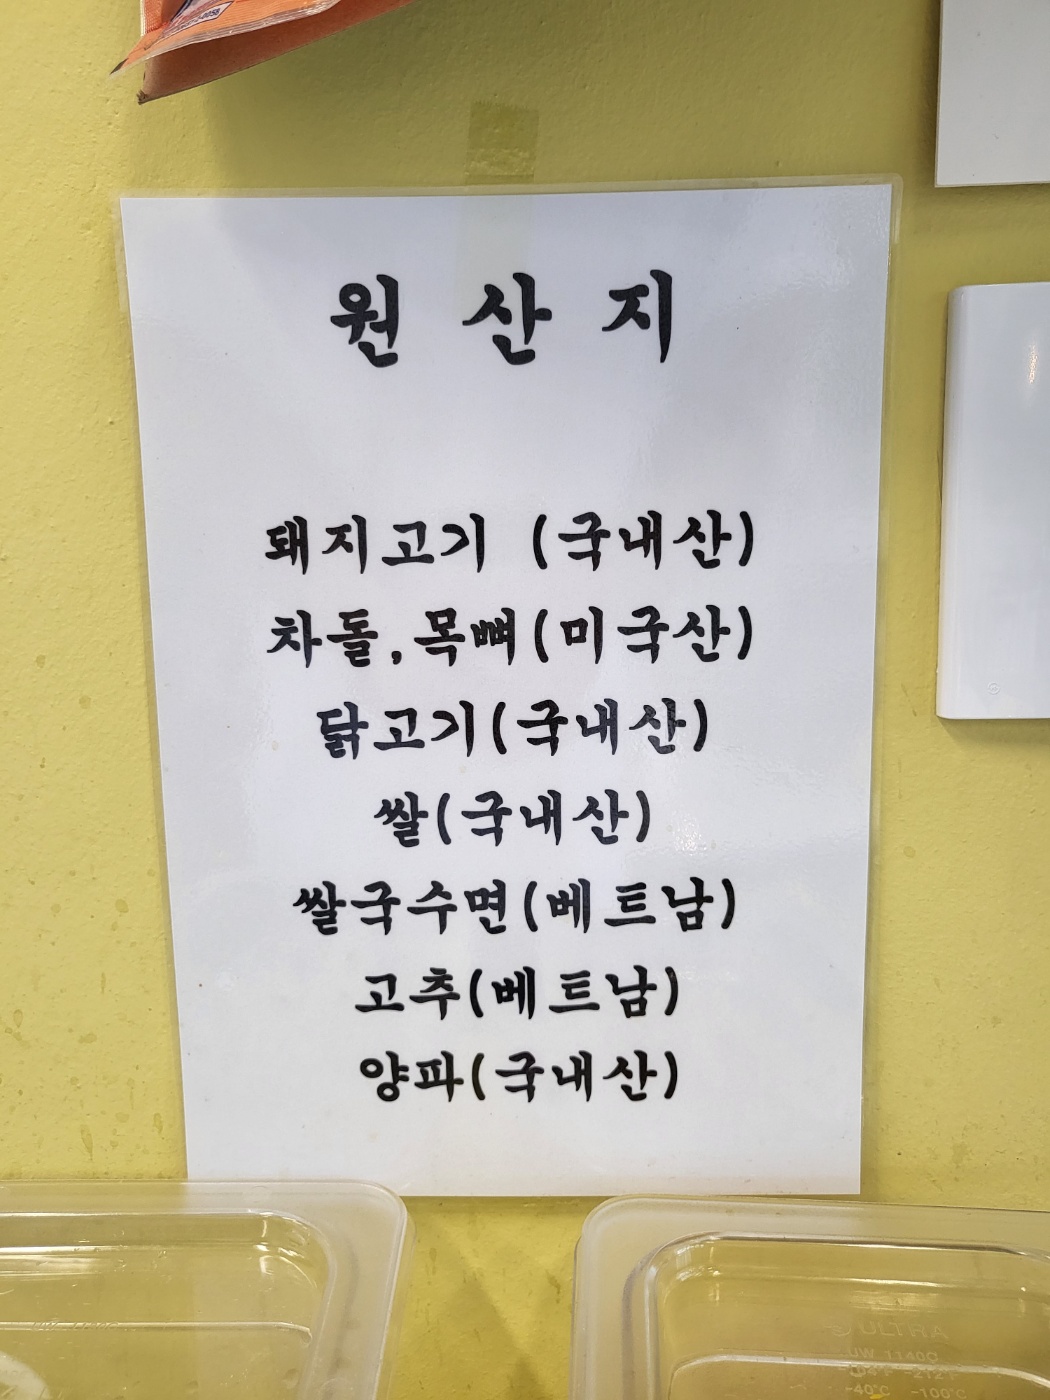 원 산 지
돼지고기 (국내산)
차돌,목뼈(미국산)
닭고기(국내산)
쌀(국내산)
쌀국수면(베트남)
고추(베트남)
양파(국내산)
ULTRA
UW 1140Q
-40°C -100°C